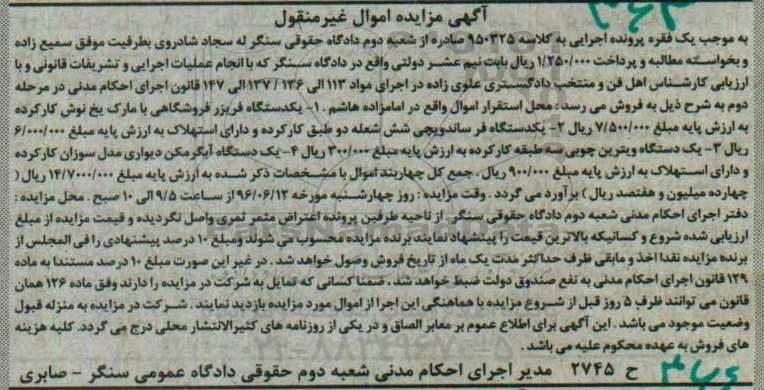 آگهی مزایده اموال غیرمنقول
به موجب یک فقره پرونده اجرایی به کلاسه ۹۵۰۳۲۵ صادره از شعبه دوم دادگاه حقوقی سنگر له سجاد شادروی بطرفیت موفق سمیع زاده
و بخواسته مطالبه و پرداخت ۱/۲۵۰/۰۰۰ ریال بابت نیم عشر دولتی واقع در دادگاه سنگر که با انجام عملیات اجرایی و تشریفات قانونی و با
ارزیابی کارشناس اهل فن و منتخب دادگستری علوی زاده در اجرای مواد ۱۱۳ الی ۱۳۶ / ۱۳۷ الی ۱۴۷ قانون اجرای احکام مدنی در مرحله
دوم به شرح ذیل به فروش می رسد : محل استقرار اموال واقع در امامزاده هاشم . ۱- یکدستگاه فریزر فروشگاهی با مارک یخ نوش کارکرده
به ارزش پایه مبلغ ۷/۵۰۰/۰۰۰ ریال ۲- یکدستگاه فر ساندویچی شش شعله دو طبق کارکرده و دارای استهلاک به ارزش پایه مبلغ ۶/۰۰۰/۰۰۰
ریال ۳- یک دستگاه ویترین چوبی سه طبقه کارکرده به ارزش پایه مبلغ ۳۰۰/۰۰۰ ریال ۴- یک دستگاه آبگرمکن دیواری مدل سوزان کارکرده
و دارای استهلاک به ارزش پایه مبلغ ۹۰۰/۰۰۰ ریال . جمع کل چهاربند اموال با مشخصات ذکر شده به ارزش پایه مبلغ ۱۴/۷۰۰۰/۰۰۰ ریال (
چهارده میلیون و هفتصد ریال ) برآورد می گردد . وقت مزایده : روز چهارشنبه مورخه ۹۶/۰۶/۱۲ از ساعت ۹/۵ الی ۱۰ صبح . محل مزایده :
دفتر اجرای احکام مدنی شعبه دوم دادگاه حقوقی سنگر . از ناحیه طرفین پرونده اعتراض مثمر ثمری واصل نگردیده و قیمت مزایده از مبلغ
ارزیابی شده شروع و کسانیکه بالاترین قیمت را پیشنهاد نمایند برنده مزایده محسوب می شوند ومبلغ ۱۰ درصد پیشنهادی را فی المجلس از
برنده مزایده نقدا اخذ و مابقی ظرف حداکثر مدت یک ماه از تاریخ فروش وصول خواهد شد . در غیر این صورت مبلغ ۱۰ درصد مستندا به ماده
۱۲۹ قانون اجرای احکام مدنی به نفع صندوق دولت ضبط خواهد شد . ضمنا کسانی که تمایل به شرکت در مزایده را دارند وفق ماده ۱۲۶ همان
قانون می توانند ظرف ۵ روز قبل از شروع مزایده با هماهنگی این اجرا از اموال مورد مزایده بازدید نمایند . شرکت در مزایده به منزله قبول
وضعیت موجود می باشد . این آگهی برای اطلاع عموم بر معابر الصاق و در یکی از روزنامه های کثیرالانتشار محلی درج می گردد. کلیه هزینه
های فروش به عهده محکوم علیه می باشد .
ح ۲۷۴۵ مدیر اجرای احکام مدنی شعبه دوم حقوقی دادگاه عمومی سنگر - صابری